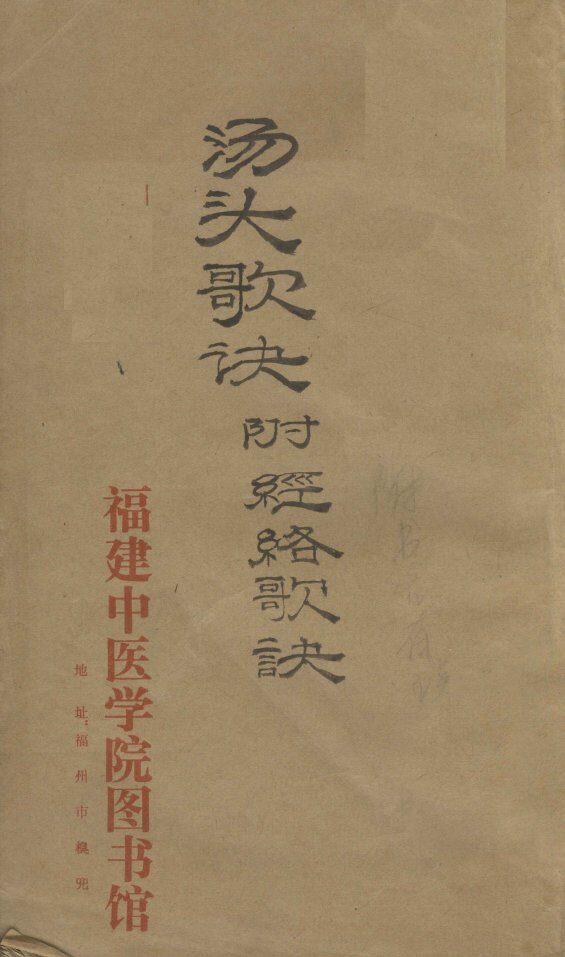 汤头歌诀
附經絡歌訣
福建中医学院图书馆
地址：福州市